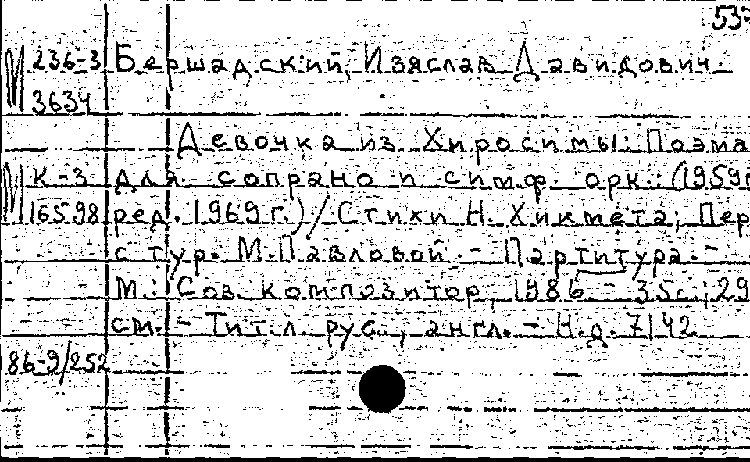 53
М 236-3 Бершадский, Изяслав Давидович.
3634
Девочка из Хиросимы: Поэма
М К-3 для сопрано и симф. орк.: (1959г
165.98 ред. 1969 г.) / Стихи Н. Хикмета; Пер
с тур. М. Павловой. - Партитура. -
М.: Сов. композитор, 1986. - 35с.; 29
см. - Тит. л. рус., англ. - Н.д. 7142.
86-9/252